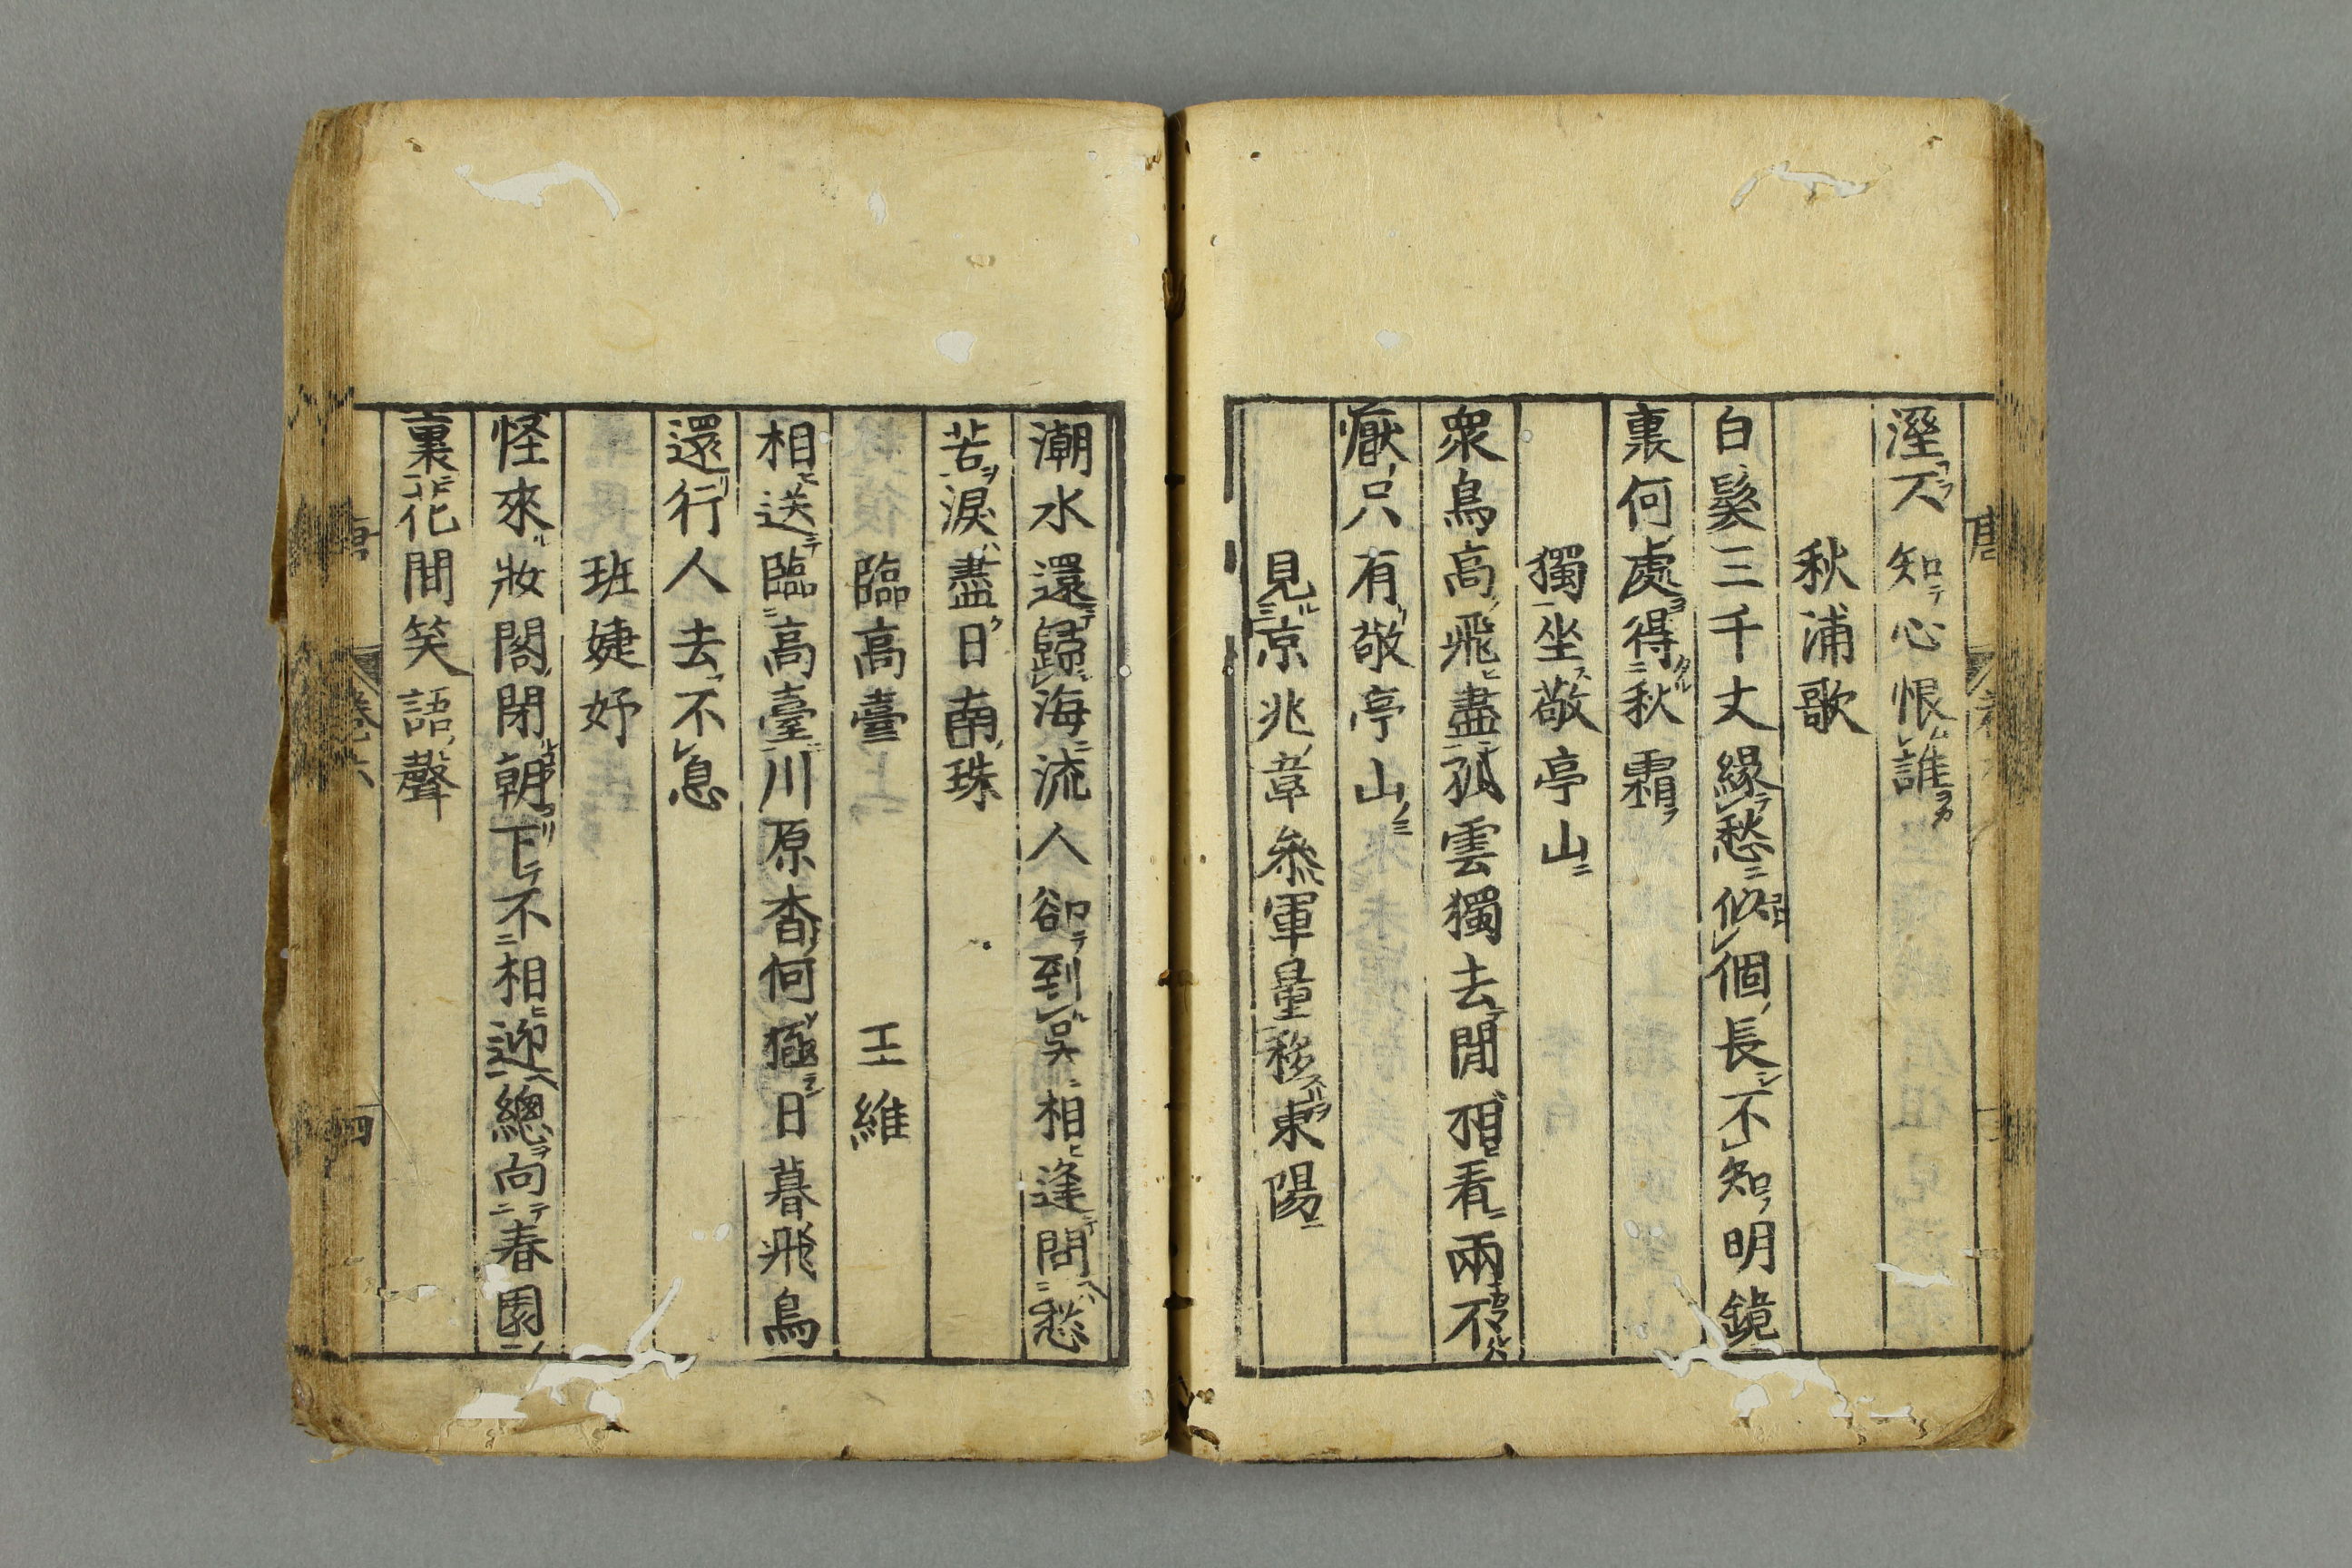 溼不知心恨誰
秋浦歌
白髮三千丈緣愁似個長不知明鏡
裏何處得秋霜
獨坐敬亭山
衆鳥高飛盡孤雲獨去閒相看兩不
厭只有敬亭山
見京兆韋參軍量移東陽
潮水還歸海流人卻到吳相逢問愁
苦淚盡日南珠
臨高臺 王維
相送臨高臺川原杳何極日暮飛鳥
還行人去不息
班婕妤
怪來妝閣閉朝下不相迎總向春園
裏花間笑語聲